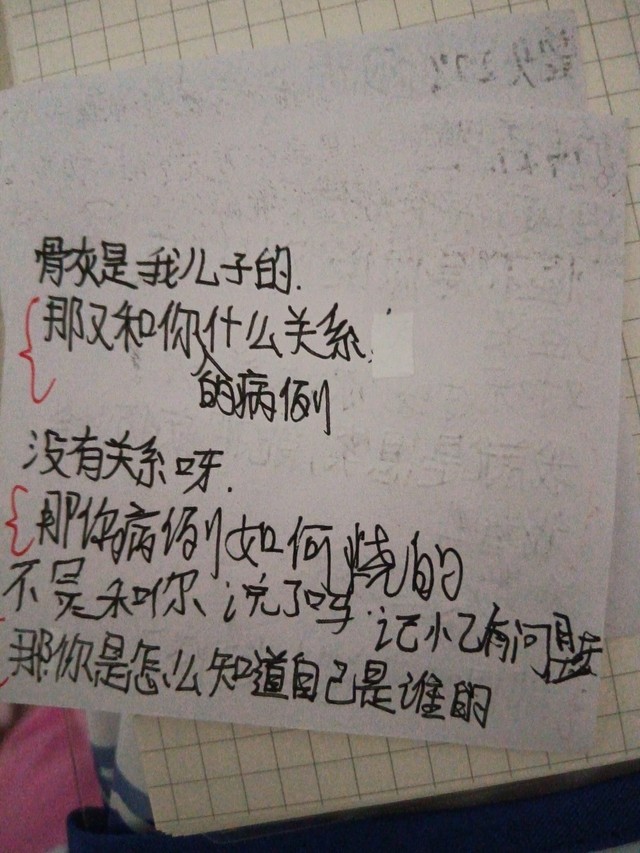 骨灰是我儿子的.
那又和你什么关系.
的病例
没有关系呀.
那你病例如何烧的
不是和你说了吗.记小乙有问题
那你是怎么知道自己是谁的